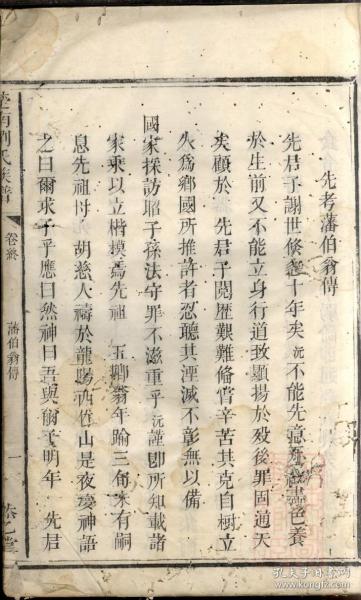 先考藩伯翁傳
先君子謝世倏忽十年矣沅不能先意承志盡色養
於生前又不能立身行道致顯揚於殁後罪固通天
矣顧於 先君子閱歷艱難偹甞辛苦其克自樹立
久為鄉國所推許者忍聽其湮滅不彰無以備
國家採訪昭子孫法守罪不滋重乎沅謹即所知載諸
家乘以立楷模焉先祖 玉卿翁年踰三旬未有嗣
息先祖妣 胡慈人禱於龍陽西竺山是夜夢神語
之曰爾求子乎應曰然神曰吾與爾子明年 先君
楚南劉氏族譜
卷終
藩伯翁傳
一